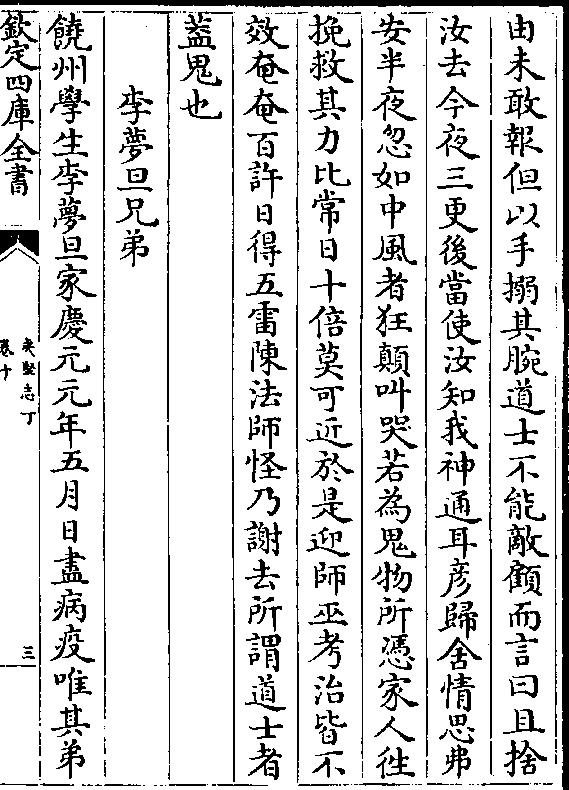 由未敢報但以手搦其腕道士不能敵顧而言曰且捨
汝去今夜三更後當使汝知我神通耳彦歸舍情思弗
安半夜忽如中風者狂顛叫哭若為鬼物所憑家人徃
挽救其力比常日十倍莫可近於是迎師巫考治皆不
效奄奄百許日得五雷陳法師怪乃謝去所謂道士者
葢鬼也
李夢旦兄弟
饒州學生李夢旦家慶元元年五月日盡病疫唯其弟
欽定四庫全書
夷堅志丁
卷十
三